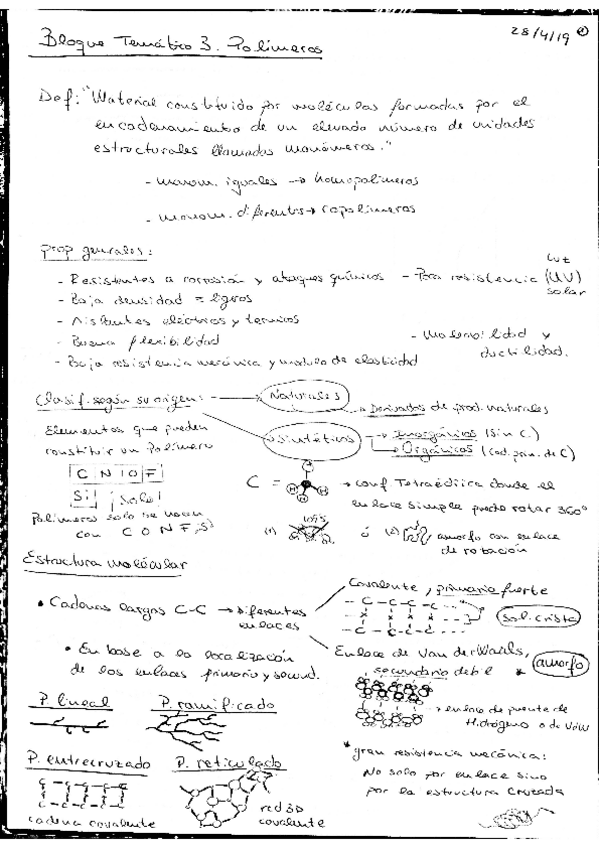 28/4/19
Bloque Temático 3. Polímeros
Def: "Material constituido por moléculas formadas por el
encadenamiento de un elevado número de unidades
estructurales llamadas monómeros."
- monom. iguales → homopolímeros
- monom. diferentes → copolímeros
prop generales:
- Resistentes a corrosión y ataques químicos - Poca resistencia luz (UV) solar
- Baja densidad = ligeros
- Aislantes eléctricos y termicos
- Buena flexibilidad - Moldeabilidad y ductilidad.
- Baja resistencia mecánica y modulo de elasticidad
Clasif. según su origen: → Naturales
→ Derivados de prod. naturales
Sintéticos → Inorgánicos (sin C.)
→ Orgánicos (cad. prin. de C)
Elementos que pueden
constituir un Polímero
C N O F
Si ¡Solo!
Polímeros solo se hacen
con C O N F, S)
C = H H H → conf. Tetraédrica donde el
enlace simple puede rotar 360º
(1) 109'5 ó (2) amorfo con enlace
de rotación
Estructura molécular
• Cadenas largas C-C → diferentes
enlaces
Covalente, primario fuerte
-- C - C - C - C --
-- C - C - C - C --
sol. crista
• En base a la localización
de los enlaces primario y secund.
Enlace de Van der Waals,
secundario debil * amorfo
→ enlace de puente de
Hidrógeno o de VdW
P. lineal P. ramificado
P. entrecruzado P. reticulado
cadena covalente
red 3D
covalente
* gran resistencia mecánica:
No solo por enlace sino
por la estructura cruzada